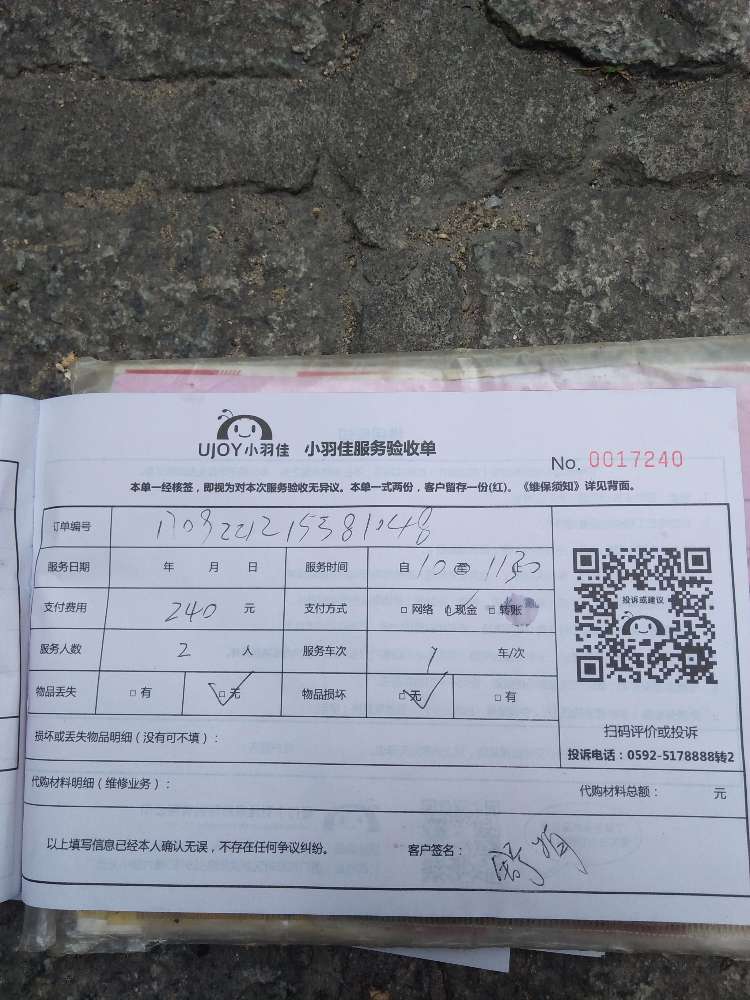 UJOY小羽佳 小羽佳服务验收单
No. 0017240
本单一经核签，即视为对本次服务验收无异议。本单一式两份，客户留存一份(红)。《维保须知》详见背面。
订单编号
服务日期 年 月 日 服务时间 自 10 至 1130
支付费用 240 元 支付方式 □ 网络 现金 □ 转账
服务人数 2 人 服务车次 1 车/次
物品丢失 □ 有 □ 无 物品损坏 □ 无 □ 有
损坏或丢失物品明细（没有可不填）：
代购材料明细（维修业务）： 代购材料总额： 元
以上填写信息已经本人确认无误，不存在任何争议纠纷。 客户签名：
投诉或建议
扫码评价或投诉
投诉电话：0592-5178888转2